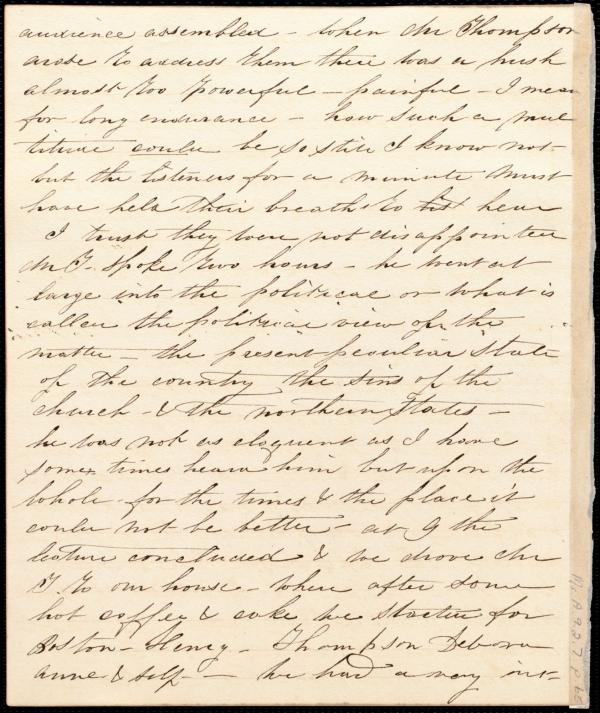 audience assembled - when Mr Thompson
arose to address them there was a hush
almost too powerful - painful - I mean
for long endurance - how such a mul
titude could be so still I know not -
but the listeners for a minute must
have held their breath to list hear
I trust they were not disappointed
Mr T. spoke two hours - he went at
large into the political or what is
called the political view of the
matter - the present peculiar state
of the country the sins of the
church - & the northern States -
he was not as eloquent as I have
some times heard him but upon the
whole - for the times & the place it
could not be better - at 9 the
lecture concluded & we drove Mr
T. to our house - where after some
hot coffee & cake we started for
Boston - Henry - Thompson Debora
Anne & self - we had a very int-